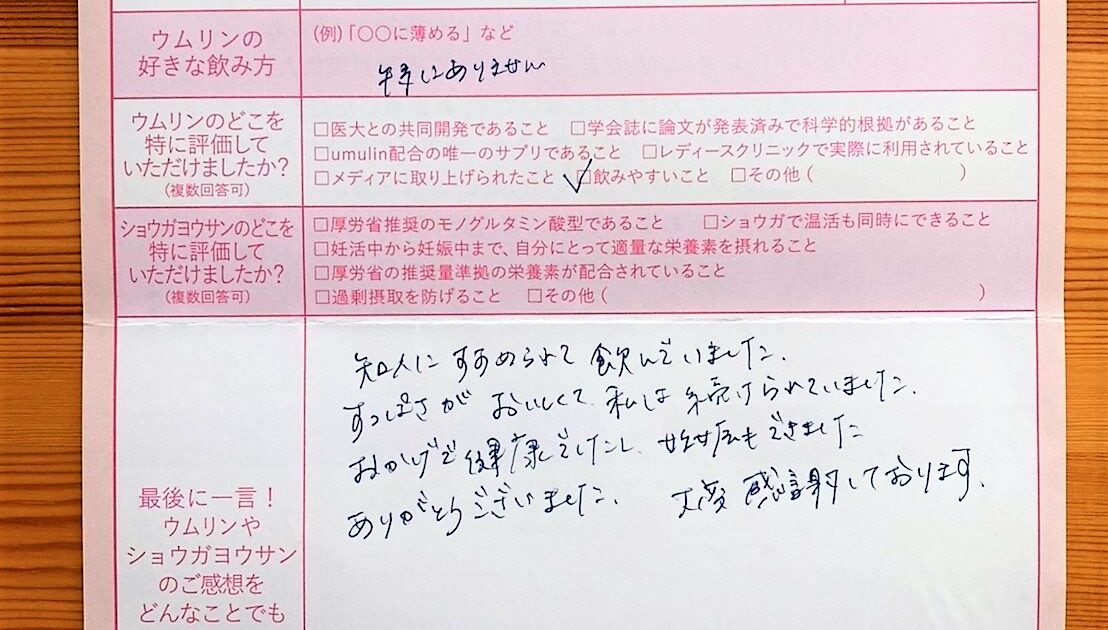 ウムリンの
好きな飲み方
(例)「〇〇に薄める」など
特にありません
ウムリンのどこを
特に評価して
いただけましたか?
(複数回答可)
□医大との共同開発であること □学会誌に論文が発表済みで科学的根拠があること
□umulin配合の唯一のサプリであること □レディースクリニックで実際に利用されていること
□メディアに取り上げられたこと ☑飲みやすいこと □その他( )
ショウガヨウサンのどこを
特に評価して
いただけましたか?
(複数回答可)
□厚労省推奨のモノグルタミン酸型であること □ショウガで温活も同時にできること
□妊活中から妊娠中まで、自分にとって適量な栄養素を摂れること
□厚労省の推奨量準拠の栄養素が配合されていること
□過剰摂取を防げること □その他( )
最後に一言!
ウムリンや
ショウガヨウサン
のご感想を
どんなことでも
知人にすすめられて飲んでいました.
すっぱさがおいしくて私は続けられていました.
おかげで健康でしたし、妊娠もできました
ありがとうございました. 大変感謝しております.